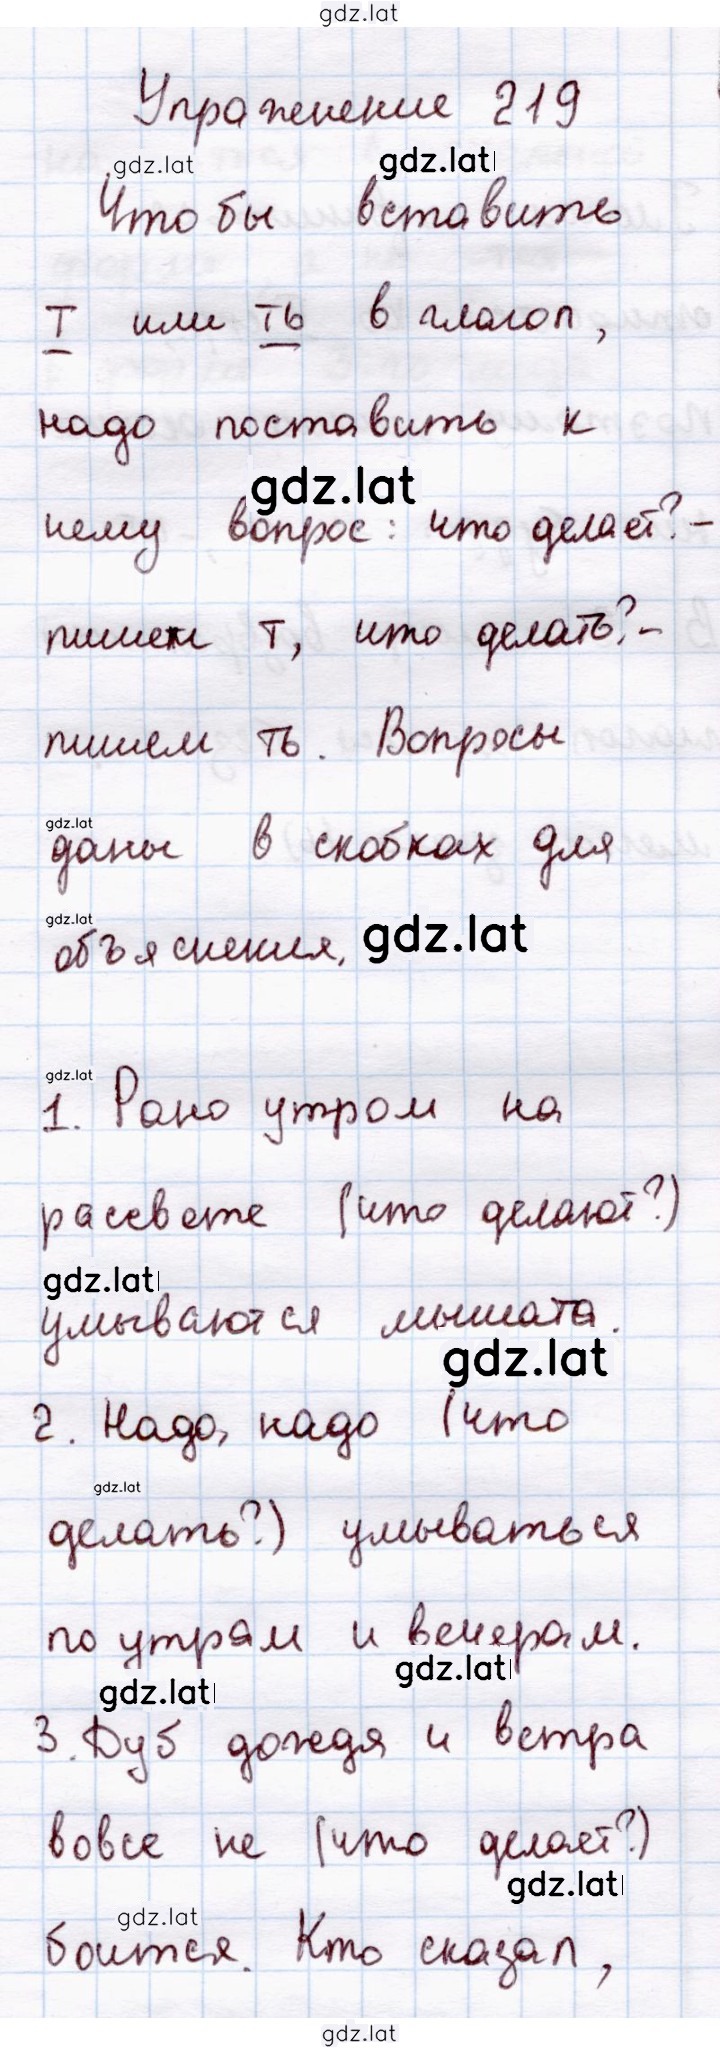 gdz.lat
Упражнение 219
gdz.lat gdz.lat
Чтобы вставить
т или ть в глагол,
надо поставить к
gdz.lat
нему вопрос: что делает? -
пишем т, что делать? -
пишем ть. Вопросы
gdz.lat
даны в скобках для
gdz.lat
объяснения. gdz.lat
gdz.lat
1. Рано утром на
рассвете (что делают?)
gdz.lat
умываются мышата.
gdz.lat
2. Надо, надо (что
gdz.lat
делать?) умываться
по утрам и вечерам.
gdz.lat gdz.lat
3. Дуб дождя и ветра
вовсе не (что делает?)
gdz.lat
gdz.lat
боится. Кто сказал,
gdz.lat